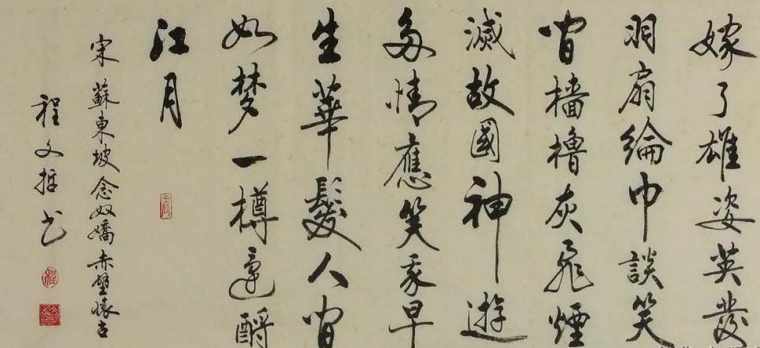 嫁了雄姿英發
羽扇綸巾談笑
間檣櫓灰飛煙
滅故國神遊
多情應笑我早
生華髮人間
如夢一樽還酹
江月
宋蘇東坡念奴嬌赤壁懷古
程文書